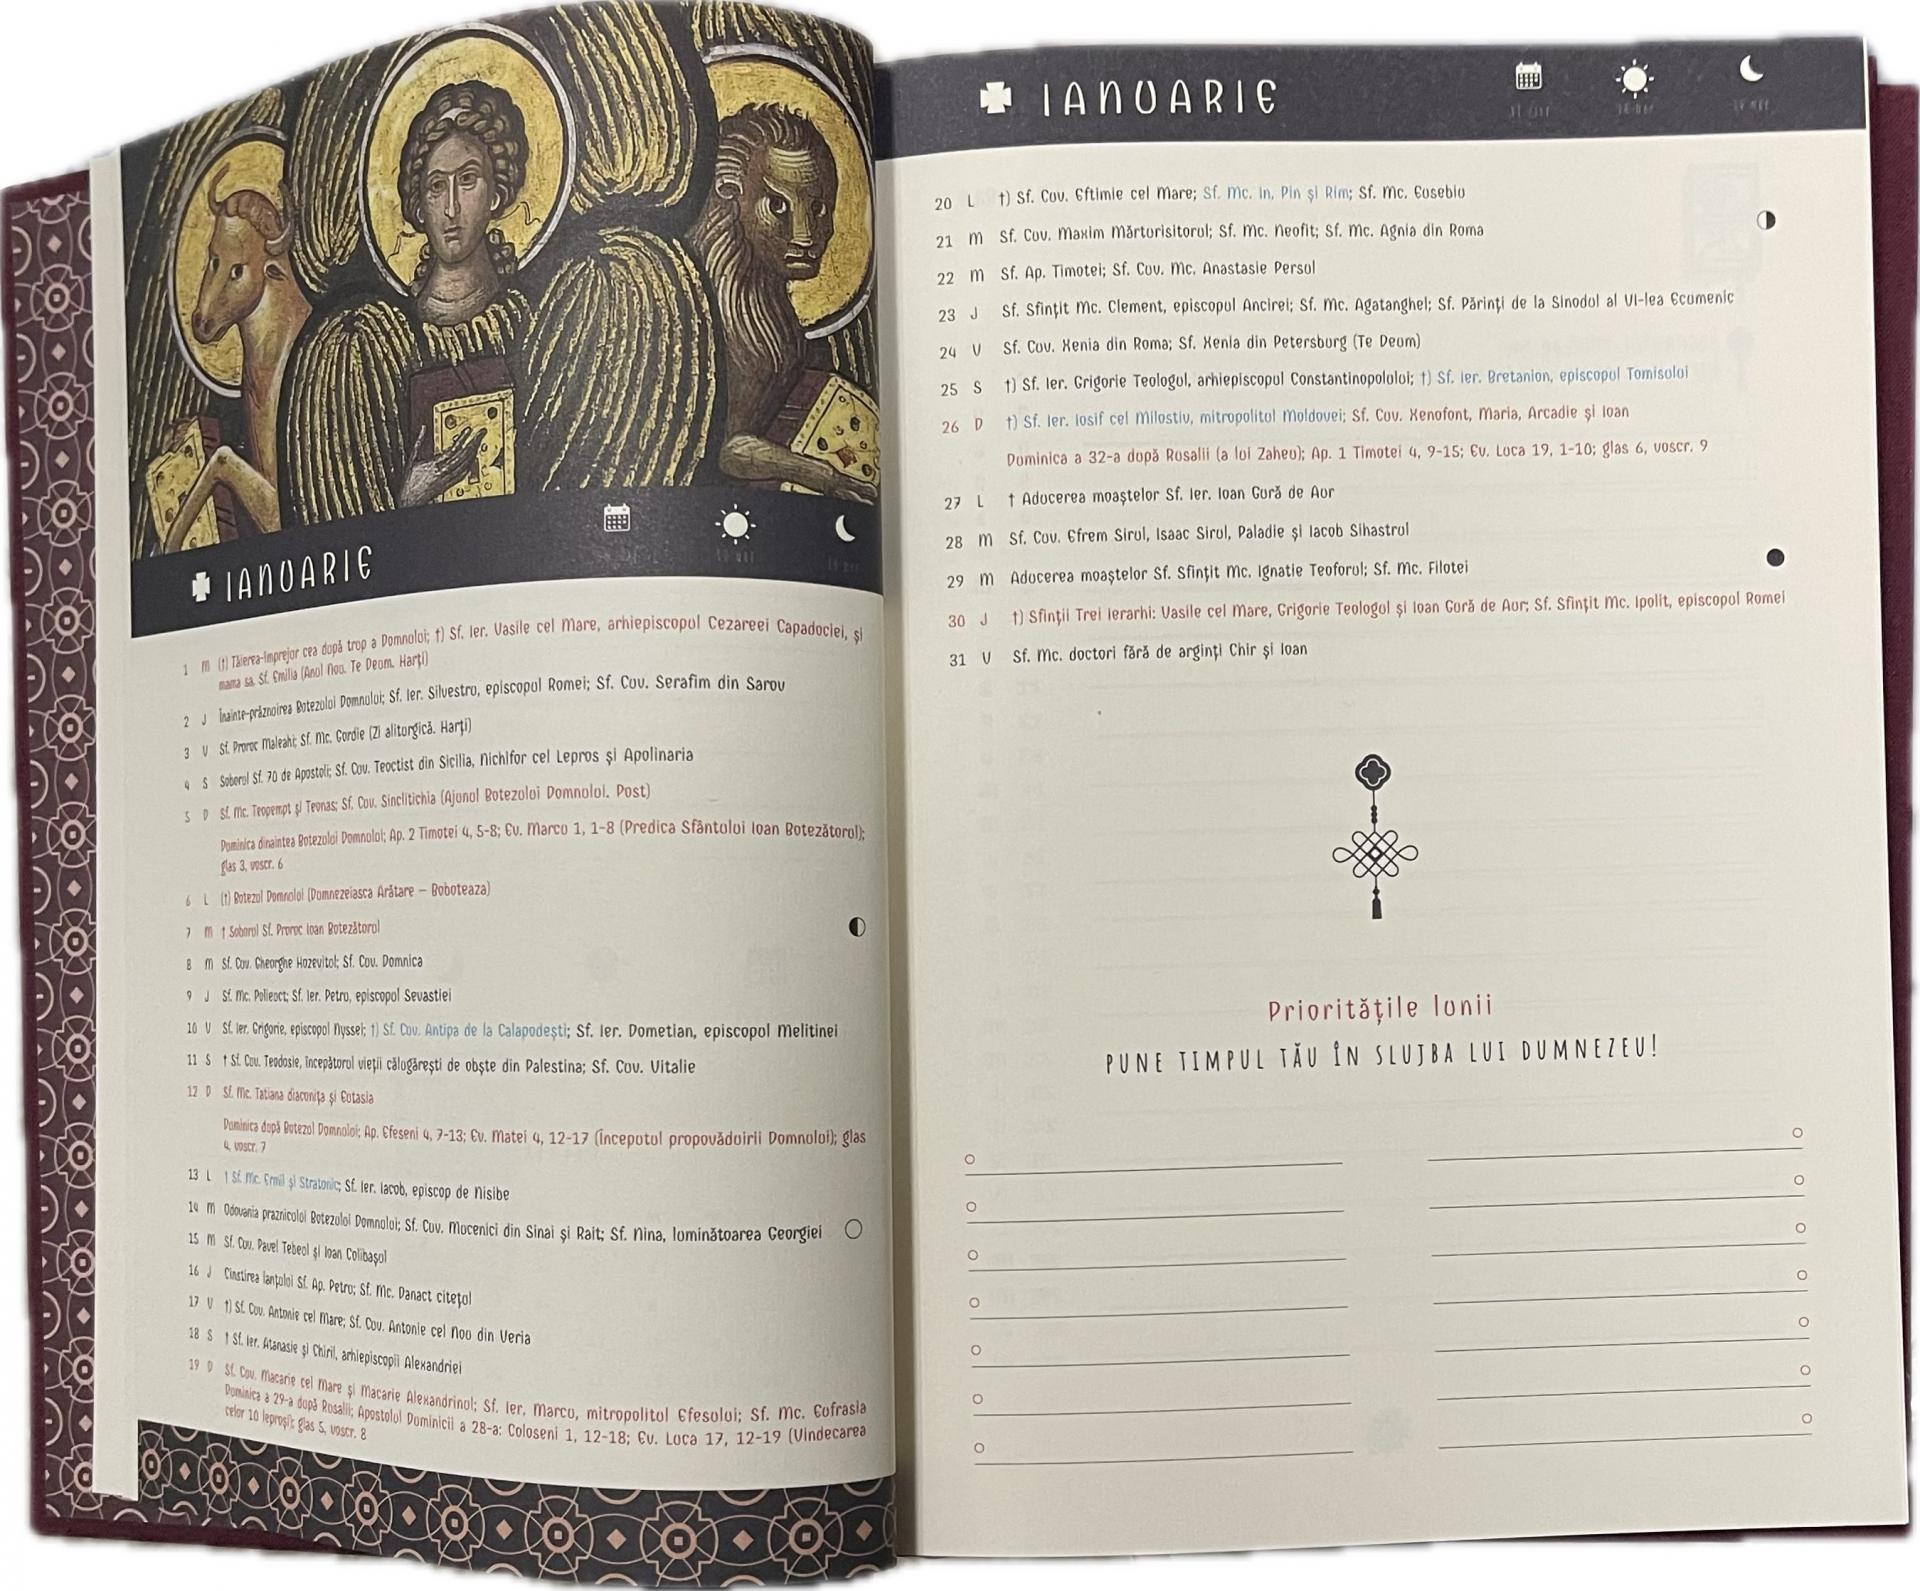 IANUARIE
1 M (†) Tăierea-împrejur cea după trup a Domnului; †) Sf. Ier. Vasile cel Mare, arhiepiscopul Cezareei Capadociei, și
mama sa, Sf. Emilia (Anul Nou. Te Deum. Harți)
2 J Înainte-prăznuirea Botezului Domnului; Sf. Ier. Silvestru, episcopul Romei; Sf. Cuv. Serafim din Sarov
3 V Sf. Proroc Maleahi; Sf. Mc. Gordie (Zi aliturgică. Harți)
4 S Soborul Sf. 70 de Apostoli; Sf. Cuv. Teoctist din Sicilia, Nichifor cel Lepros și Apolinaria
5 D Sf. Mc. Teopempt și Teonas; Sf. Cuv. Sinclitichia (Ajunul Botezului Domnului. Post)
Duminica dinaintea Botezului Domnului; Ap. 2 Timotei 4, 5-8; Ev. Marcu 1, 1-8 (Predica Sfântului Ioan Botezătorul);
glas 3, voscr. 6
6 L (†) Botezul Domnului (Dumnezeiasca Arătare – Boboteaza)
7 M † Soborul Sf. Proroc Ioan Botezătorul
8 M Sf. Cuv. Gheorghe Hozevitul; Sf. Cuv. Domnica
9 J Sf. Mc. Polieuct; Sf. Ier. Petru, episcopul Sevastiei
10 V Sf. Ier. Grigorie, episcopul Nyssei; †) Sf. Cuv. Antipa de la Calapodești; Sf. Ier. Dometian, episcopul Melitinei
11 S † Sf. Cuv. Teodosie, începătorul vieții călugărești de obște din Palestina; Sf. Cuv. Vitalie
12 D Sf. Mc. Tatiana diaconița și Eutasia
Duminica după Botezul Domnului; Ap. Efeseni 4, 7-13; Ev. Matei 4, 12-17 (Începutul propovăduirii Domnului); glas
4, voscr. 7
13 L † Sf. Mc. Ermil și Stratonic; Sf. Ier. Iacob, episcop de Nisibe
14 M Odovania praznicului Botezului Domnului; Sf. Cuv. Mucenici din Sinai și Rait; Sf. Nina, luminătoarea Georgiei
15 M Sf. Cuv. Pavel Tebeul și Ioan Colibașul
16 J Cinstirea lanțului Sf. Ap. Petru; Sf. Mc. Danact citețul
17 V †) Sf. Cuv. Antonie cel Mare; Sf. Cuv. Antonie cel Nou din Veria
18 S † Sf. Ier. Atanasie și Chiril, arhiepiscopii Alexandriei
19 D Sf. Cuv. Macarie cel Mare și Macarie Alexandrinul; Sf. Ier. Marcu, mitropolitul Efesului; Sf. Mc. Eufrasia
Duminica a 29-a după Rusalii; Apostolul Duminicii a 28-a: Coloseni 1, 12-18; Ev. Luca 17, 12-19 (Vindecarea
celor 10 leproși); glas 5, voscr. 8
IANUARIE
20 L †) Sf. Cuv. Eftimie cel Mare; Sf. Mc. In, Pin și Rim; Sf. Mc. Eusebiu
21 M Sf. Cuv. Maxim Mărturisitorul; Sf. Mc. Neofit; Sf. Mc. Agnia din Roma
22 M Sf. Ap. Timotei; Sf. Cuv. Mc. Anastasie Persul
23 J Sf. Sfințit Mc. Clement, episcopul Ancirei; Sf. Mc. Agatanghel; Sf. Părinți de la Sinodul al VI-lea Ecumenic
24 V Sf. Cuv. Xenia din Roma; Sf. Xenia din Petersburg (Te Deum)
25 S †) Sf. Ier. Grigorie Teologul, arhiepiscopul Constantinopolului; †) Sf. Ier. Bretanion, episcopul Tomisului
26 D †) Sf. Ier. Iosif cel Milostiv, mitropolitul Moldovei; Sf. Cuv. Xenofont, Maria, Arcadie și Ioan
Duminica a 32-a după Rusalii (a lui Zaheu); Ap. 1 Timotei 4, 9-15; Ev. Luca 19, 1-10; glas 6, voscr. 9
27 L † Aducerea moaștelor Sf. Ier. Ioan Gură de Aur
28 M Sf. Cuv. Efrem Sirul, Isaac Sirul, Paladie și Iacob Sihastrul
29 M Aducerea moaștelor Sf. Sfințit Mc. Ignatie Teoforul; Sf. Mc. Filotei
30 J †) Sfinții Trei Ierarhi: Vasile cel Mare, Grigorie Teologul și Ioan Gură de Aur; Sf. Sfințit Mc. Ipolit, episcopul Romei
31 V Sf. Mc. doctori fără de arginți Chir și Ioan
Prioritățile lunii
PUNE TIMPUL TĂU ÎN SLUJBA LUI DUMNEZEU!